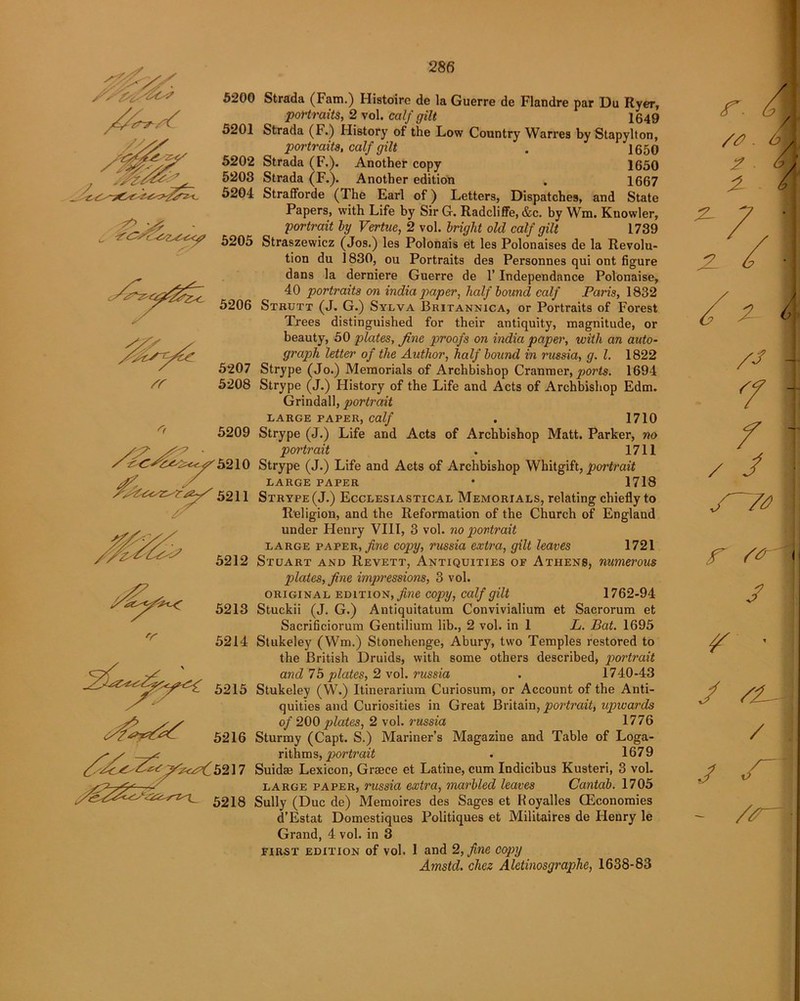 286
5200 Strada (Fam.) Histoire de la Guerre de Flandre par Du Ryer,
portraits, 2 vol. calf gilt 1649
5201 Strada (F.) History of the Low Country Warres by Stapylton,
portraits, calf gilt . 1650
5202 Strada (F.). Another copy 1650
5203 Strada (F.). Another edition . 1667
5204 Strafforde (The Earl of) Letters, Dispatches, and State
Papers, with Life by Sir G. Radcliffe, &c. by Wm. Knowler,
portrait by Vertue, 2 vol. bright old calf gilt 1739
5205 Straszewicz (Jos.) les Polonais et les Polonaises de la Revolu-
tion du 1830, ou Portraits des Personnes qui ont figure
dans la derniere Guerre de l' Independance Polonaise,
40 portraits on india paper, half bound calf Paris, 1832
5206 Strutt (J. G.) Sylva Britannica, or Portraits of Forest
Trees distinguished for their antiquity, magnitude, or
beauty, 50 plates, fine proofs on india paper, with an auto-
graph letter of the Author, half bound in russia, g. l. 1822
5207 Strype (Jo.) Memorials of Archbishop Cranmer, ports. 1694
5208 Strype (J.) History of the Life and Acts of Archbishop Edm.
Grindall, portrait
LARGE PAPER, calf . 1710
5209 Strype (J.) Life and Acts of Archbishop Matt. Parker, no
portrait . 1711
5210 Strype (J.) Life and Acts of Archbishop Whitgift, portrait
LARGE PAPER • 1718
5211 Strype (J.) Ecclesiastical Memorials, relating chiefly to
Religion, and the Reformation of the Church of England
under Henry VIII, 3 vol. no portrait
LARGE PAPER, fine copy, russia extra, gilt leaves 1721
5212 Stuart and Revett, Antiquities of Athens, numerous
plates, fine impressions, 3 vol.
ORIGINAL EDITION, fine copy, calf gilt 1762-94
5213 Stuckii (J. G.) Antiquitatum Convivialium et Sacrorum et
Sacrificiorum Gentilium lib., 2 vol. in 1 L. Bat. 1695
5214 Stukeley (Wm.) Stonehenge, Abury, two Temples restored to
the British Druids, with some others described, portrait
and 75 plates, 2 vol. russia . 1740-43
5215 Stukeley (W.) Itinerarium Curiosum, or Account of the Anti-
quities and Curiosities in Great Britain, portrait, upwards
of 200 plates, 2 vol. russia 1776
5216 Sturmy (Capt. S.) Mariner's Magazine and Table of Loga-
rithms, portrait . 1679
5217 Suidæ Lexicon, Græce et Latine, cum Indicibus Kusteri, 3 vol.
LARGE PAPER, russia extra, marbled leaves Cantab. 1705
5218 Sully (Duc de) Memoires des Sages et Royalles Œconomies
d'Estat Domestiques Politiques et Militaires de Henry le
Grand, 4 vol. in 3
FIRST EDITION of vol. 1 and 2, fine copy
Amstd. chez Aletinosgraphe, 1638-83